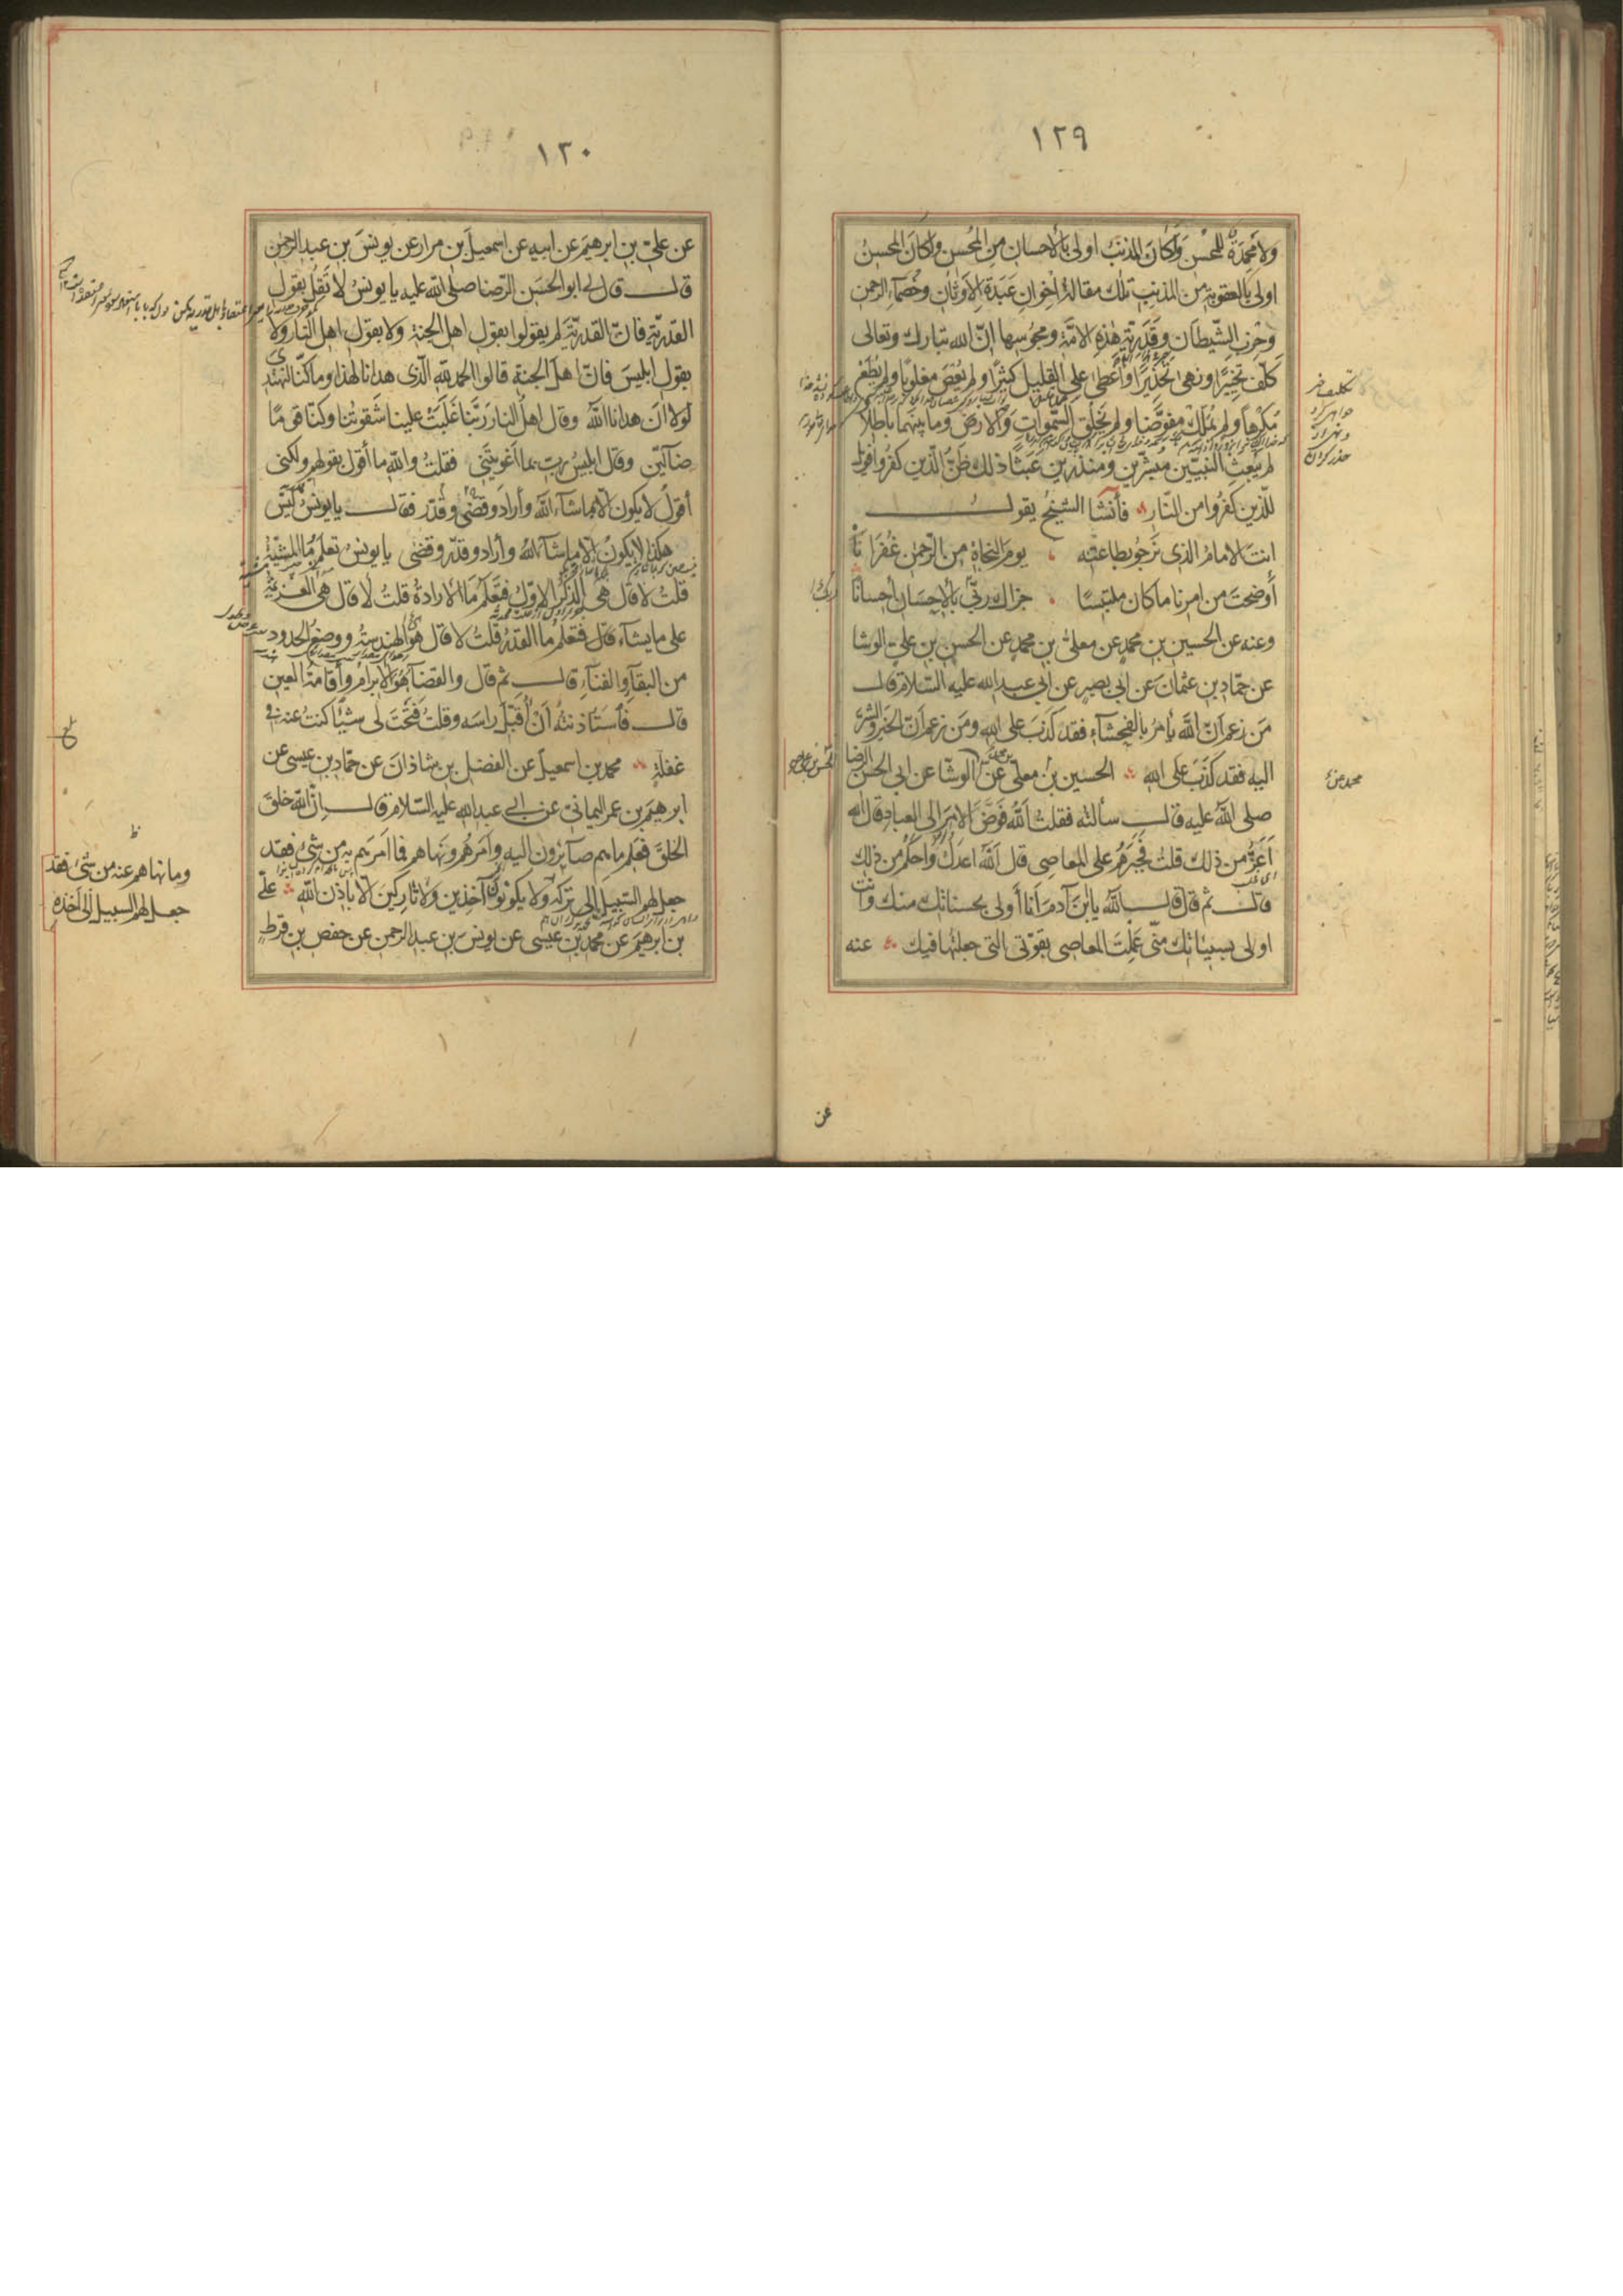 ١٢٩
ولا محمدة للمحسن ولكان المذنب اولى بالاحسان من المحسن ولكان المحسن
اولى بالعقوبة من المذنب تلك مقالة اخوان عبدة الاوثان وخصماء الرحمن
وحزب الشيطان وقدرية هذه الامة ومجوسها ان الله تبارك وتعالى
كلف تخييرا ونهى تحذيرا وأعطى على القليل كثيرا ولم يعص مغلوبا ولم يطع
مكرها ولم يملك مفوضا ولم يخلق السموات والارض وما بينهما باطلا
لم يبعث النبيين مبشرين ومنذرين عبثا ذلك ظن الذين كفروا فويل
للذين كفروا من النار فأنشا الشيخ يقول
انت الامام الذى نرجو بطاعته يوم النجاة من الرحمن غفرانا
أوضحت من امرنا ما كان ملتبسا جزاك ربك بالاحسان احسانا
وعنه عن الحسين بن محمد عن معلى بن محمد عن الحسن بن على الوشا
عن حماد بن عثمان عن ابى بصير عن ابى عبد الله عليه السلام قال
من زعم ان الله يأمر بالفحشاء فقد كذب على الله ومن زعم ان الخير والشر
اليه فقد كذب على الله الحسين بن معلى عن الوشا عن ابى الحسن الرضا
صلى الله عليه قال سألته فقلت الله فوض الامر الى العباد قال الله
أعز من ذلك قلت فجبرهم على المعاصى قال الله اعدل واحكم من ذلك
قال ثم قال قال الله يا ابن آدم أنا أولى بحسناتك منك وانت
اولى بسيئاتك منى عملت المعاصى بقوتى التى جعلتها فيك عنه
عن
١٣٠
عن على بن ابرهيم عن ابيه عن اسمعيل بن مرار عن يونس بن عبد الرحمن
قال قال لى ابو الحسن الرضا صلى الله عليه يا يونس لا تقل بقول
القدرية فان القدرية لم يقولوا بقول اهل الجنة ولا بقول اهل النار ولا
بقول ابليس فان اهل الجنة قالوا الحمد لله الذى هدانا لهذا وما كنا لنهتدى
لولا ان هدانا الله وقال اهل النار ربنا غلبت علينا شقوتنا وكنا قوما
ضالين وقال ابليس رب بما أغويتنى فقلت والله ما أقول بقولهم ولكنى
أقول لا يكون الا بما شاء الله وأراد وقضى وقدر فقال يا يونس ليس
هكذا لا يكون الا ما شاء الله وأراد وقدر وقضى يا يونس تعلم ما المشية
قلت لا قال هى الذكر الاول فتعلم ما الارادة قلت لا قال هى العزيمة
على ما يشاء قال فتعلم ما القدر قلت لا قال هو الهندسة ووضع الحدود
من البقاء والفناء قال ثم قال والقضاء هو الابرام وأقامة العين
قال فاستأذنته أن أقبل راسه وقلت فتحت لى شيئا كنت عنه فى
غفلة محمد بن اسمعيل عن الفضل بن شاذان عن حماد بن عيسى عن
ابرهيم بن عمر اليمانى عن ابى عبد الله عليه السلام قال ان الله خلق
الخلق فعلم ما هم صائرون اليه وأمرهم ونهاهم فما امرهم به من شئ فقد
جعل لهم السبيل الى تركه ولا يكونون آخذين ولا تاركين الا باذن الله على
بن ابرهيم عن محمد بن عيسى عن يونس بن عبد الرحمن عن حفص بن قرط
وما نهاهم عنه من شئ فقد
جعل لهم السبيل الى أخذه